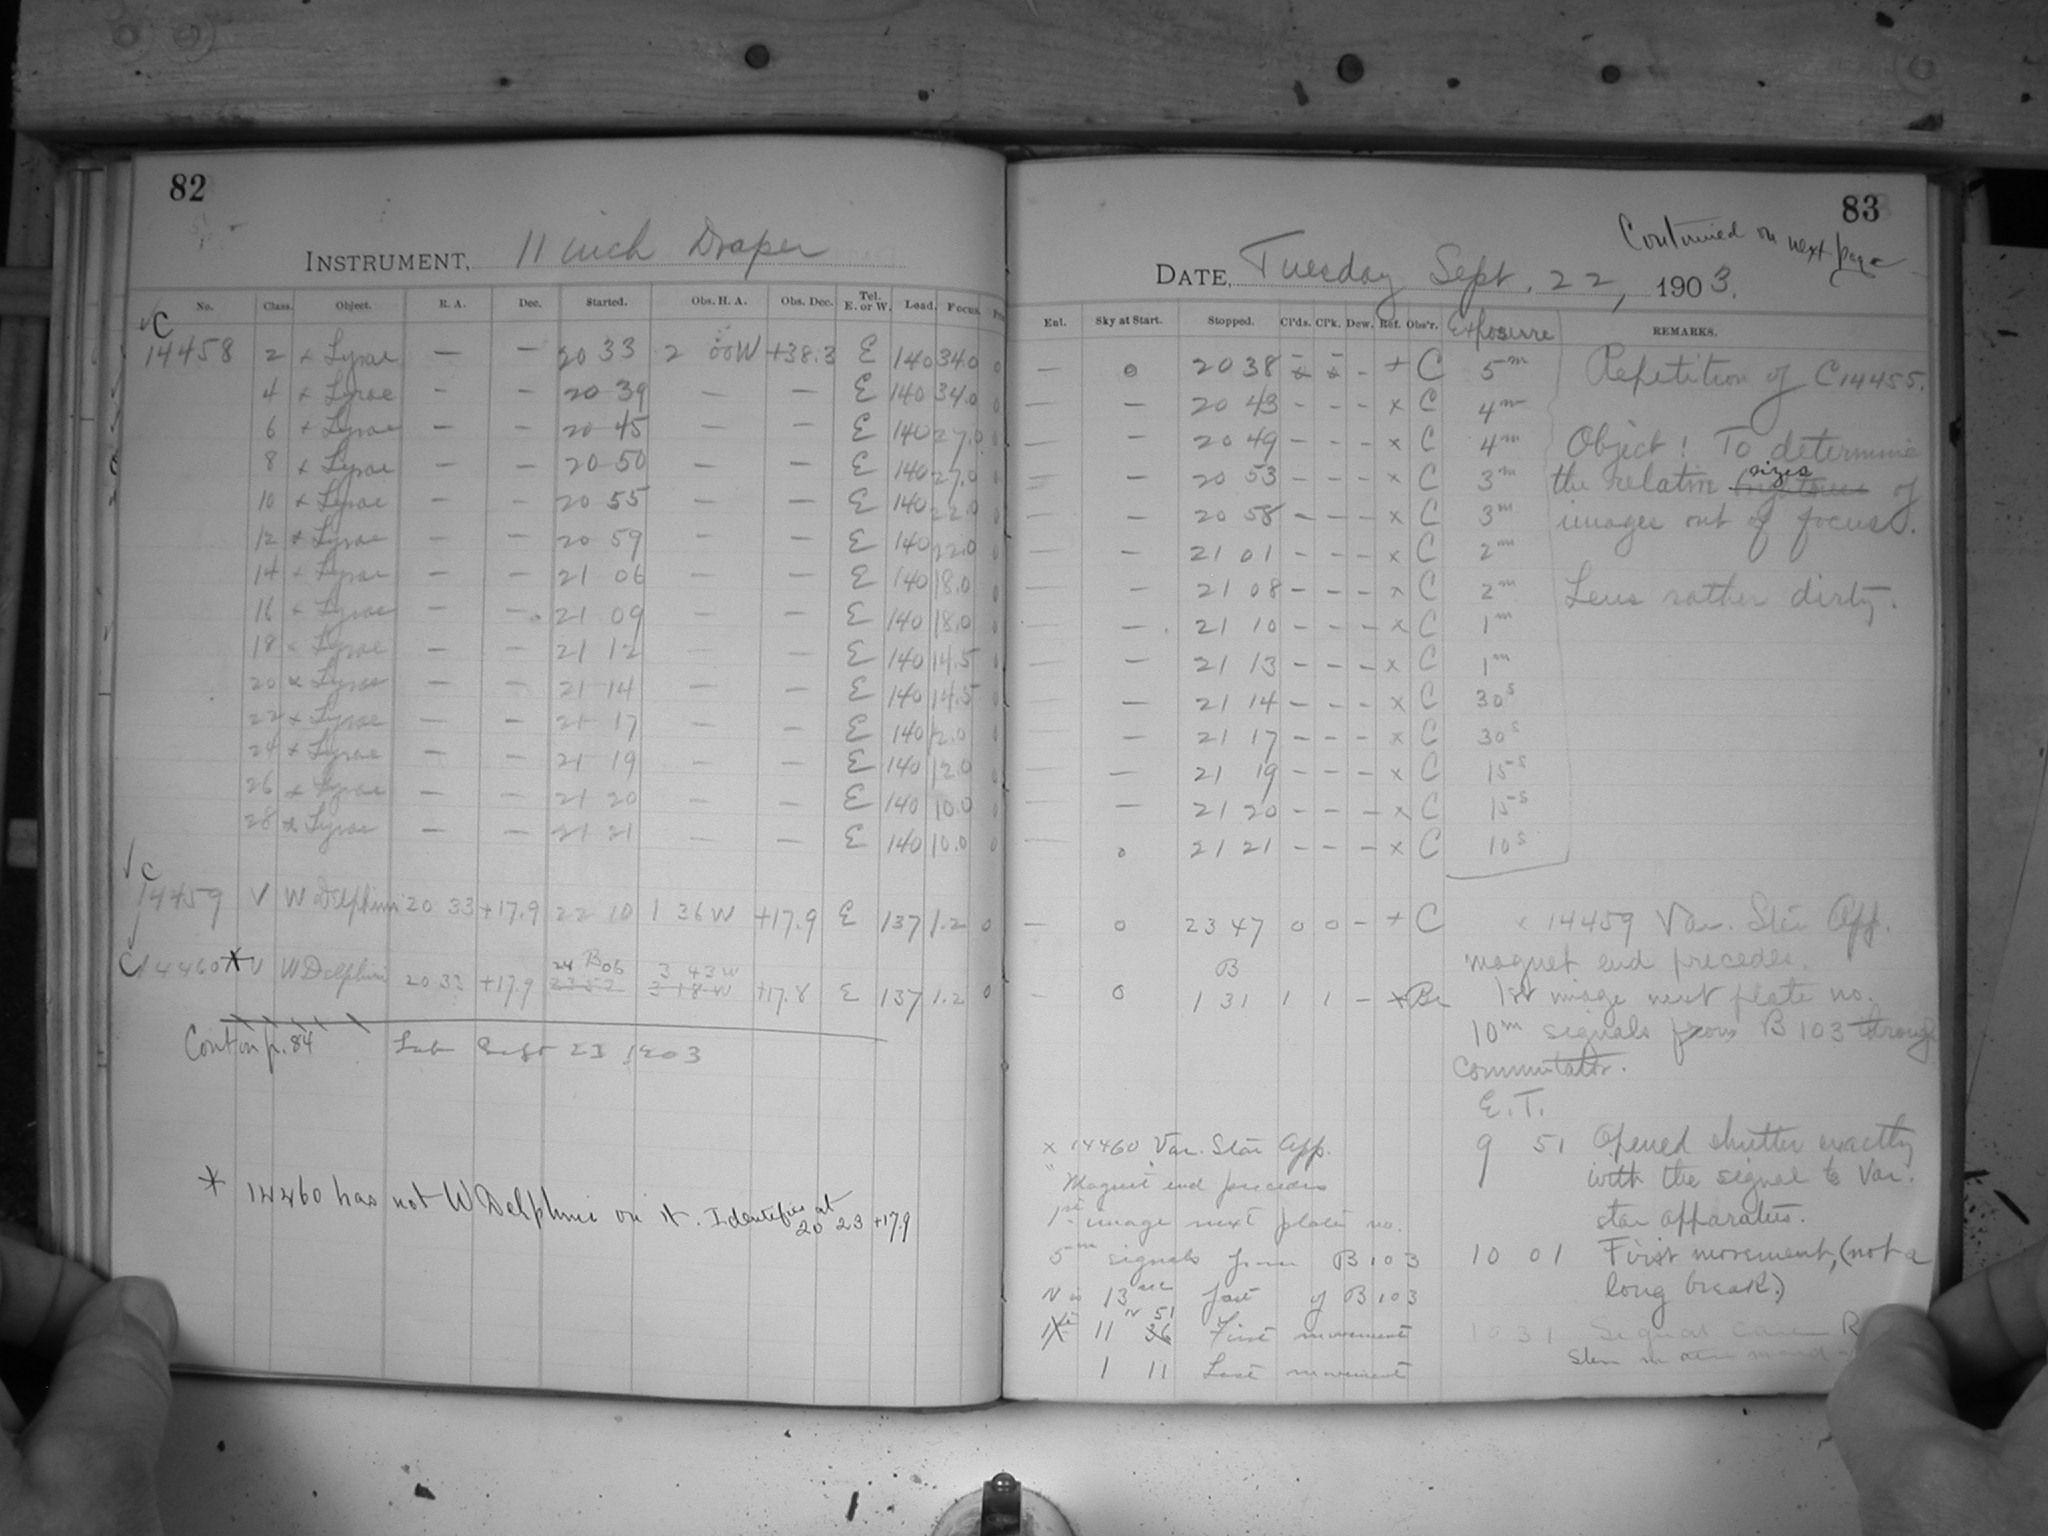 82
INSTRUMENT, 11 inch Draper
No. Class. Object. R. A. Dec. Started. Obs. H. A. Obs. Dec. Tel. E. or W. Load. Focus.
C 14458 2 α Lyrae — — 20 33 2 00 W +38.3 E 140 34.0 0
4 α Lyrae — — 20 39 — — E 140 34.0 0
6 α Lyrae — — 20 45 — — E 140 27.0 0
8 α Lyrae — — 20 50 — — E 140 27.0 0
10 α Lyrae — — 20 55 — — E 140 22.0 0
12 α Lyrae — — 20 59 — — E 140 22.0 0
14 α Lyrae — — 21 06 — — E 140 18.0 0
16 α Lyrae — — 21 09 — — E 140 18.0 0
18 α Lyrae — — 21 12 — — E 140 14.5 0
20 α Lyrae — — 21 14 — — E 140 14.5 0
22 α Lyrae — — 21 17 — — E 140 12.0 0
24 α Lyrae — — 21 19 — — E 140 12.0 0
26 α Lyrae — — 21 20 — — E 140 10.0 0
28 α Lyrae — — 21 21 — — E 140 10.0 0
C 14459 V W Delphini 20 33 +17.9 22 10 1 36 W +17.9 E 137 1.2 0
24 B 06 3 43 W
C 14460 * V W Delphini 20 33 +17.9 23 52 3 18 W +17.8 E 137 1.2 0
Cont on p. 84
Sept 1903
* 14460 has not W Delphini on it. Identifies at
20 23 +17.9
83
Continued on next page
DATE, Tuesday Sept. 22, 1903.
Ent. Sky at Start. Stopped. Cl'ds. Cl'k. Dew. Ref. Obs'r. Exposure REMARKS.
— 0 20 38 - + C 5m Repetition of C14455.
— — 20 43 - - - x C 4m
— — 20 49 - - - x C 4m Object! To determine
— 20 53 - - - x C 3m the relative sizes of
— — 20 58 - - - x C 3m images out of focus.
— — 21 01 - - - x C 2m
— — 21 08 - - - x C 2m Lens rather dirty.
— — 21 10 - - - x C 1m
— — 21 13 - - - x C 1m
— — 21 14 - - - x C 30s
— — 21 17 - - - x C 30s
— — 21 19 - - - x C 15s
— — 21 20 - - - x C 15s
— 0 21 21 - - - x C 10s
— 0 23 47 0 0 - + C x 14459 Var. Star App.
magnet end precedes.
B
— 0 1 31 1 1 - x Br 1st image next plate no.
10m signals from B 103 through
commutator.
E. T.
9 51 Opened shutter exactly
with the signal to Var.
star apparatus.
10 01 First movement, (not a
long break.)
10 31 Signal
x 14460 Var. Star App.
" Magnet end precedes
1st image next plate no.
5m signals from B 103
N is 13 sec fast of B 103
N 51
11 36 First movement
1 11 Last movement